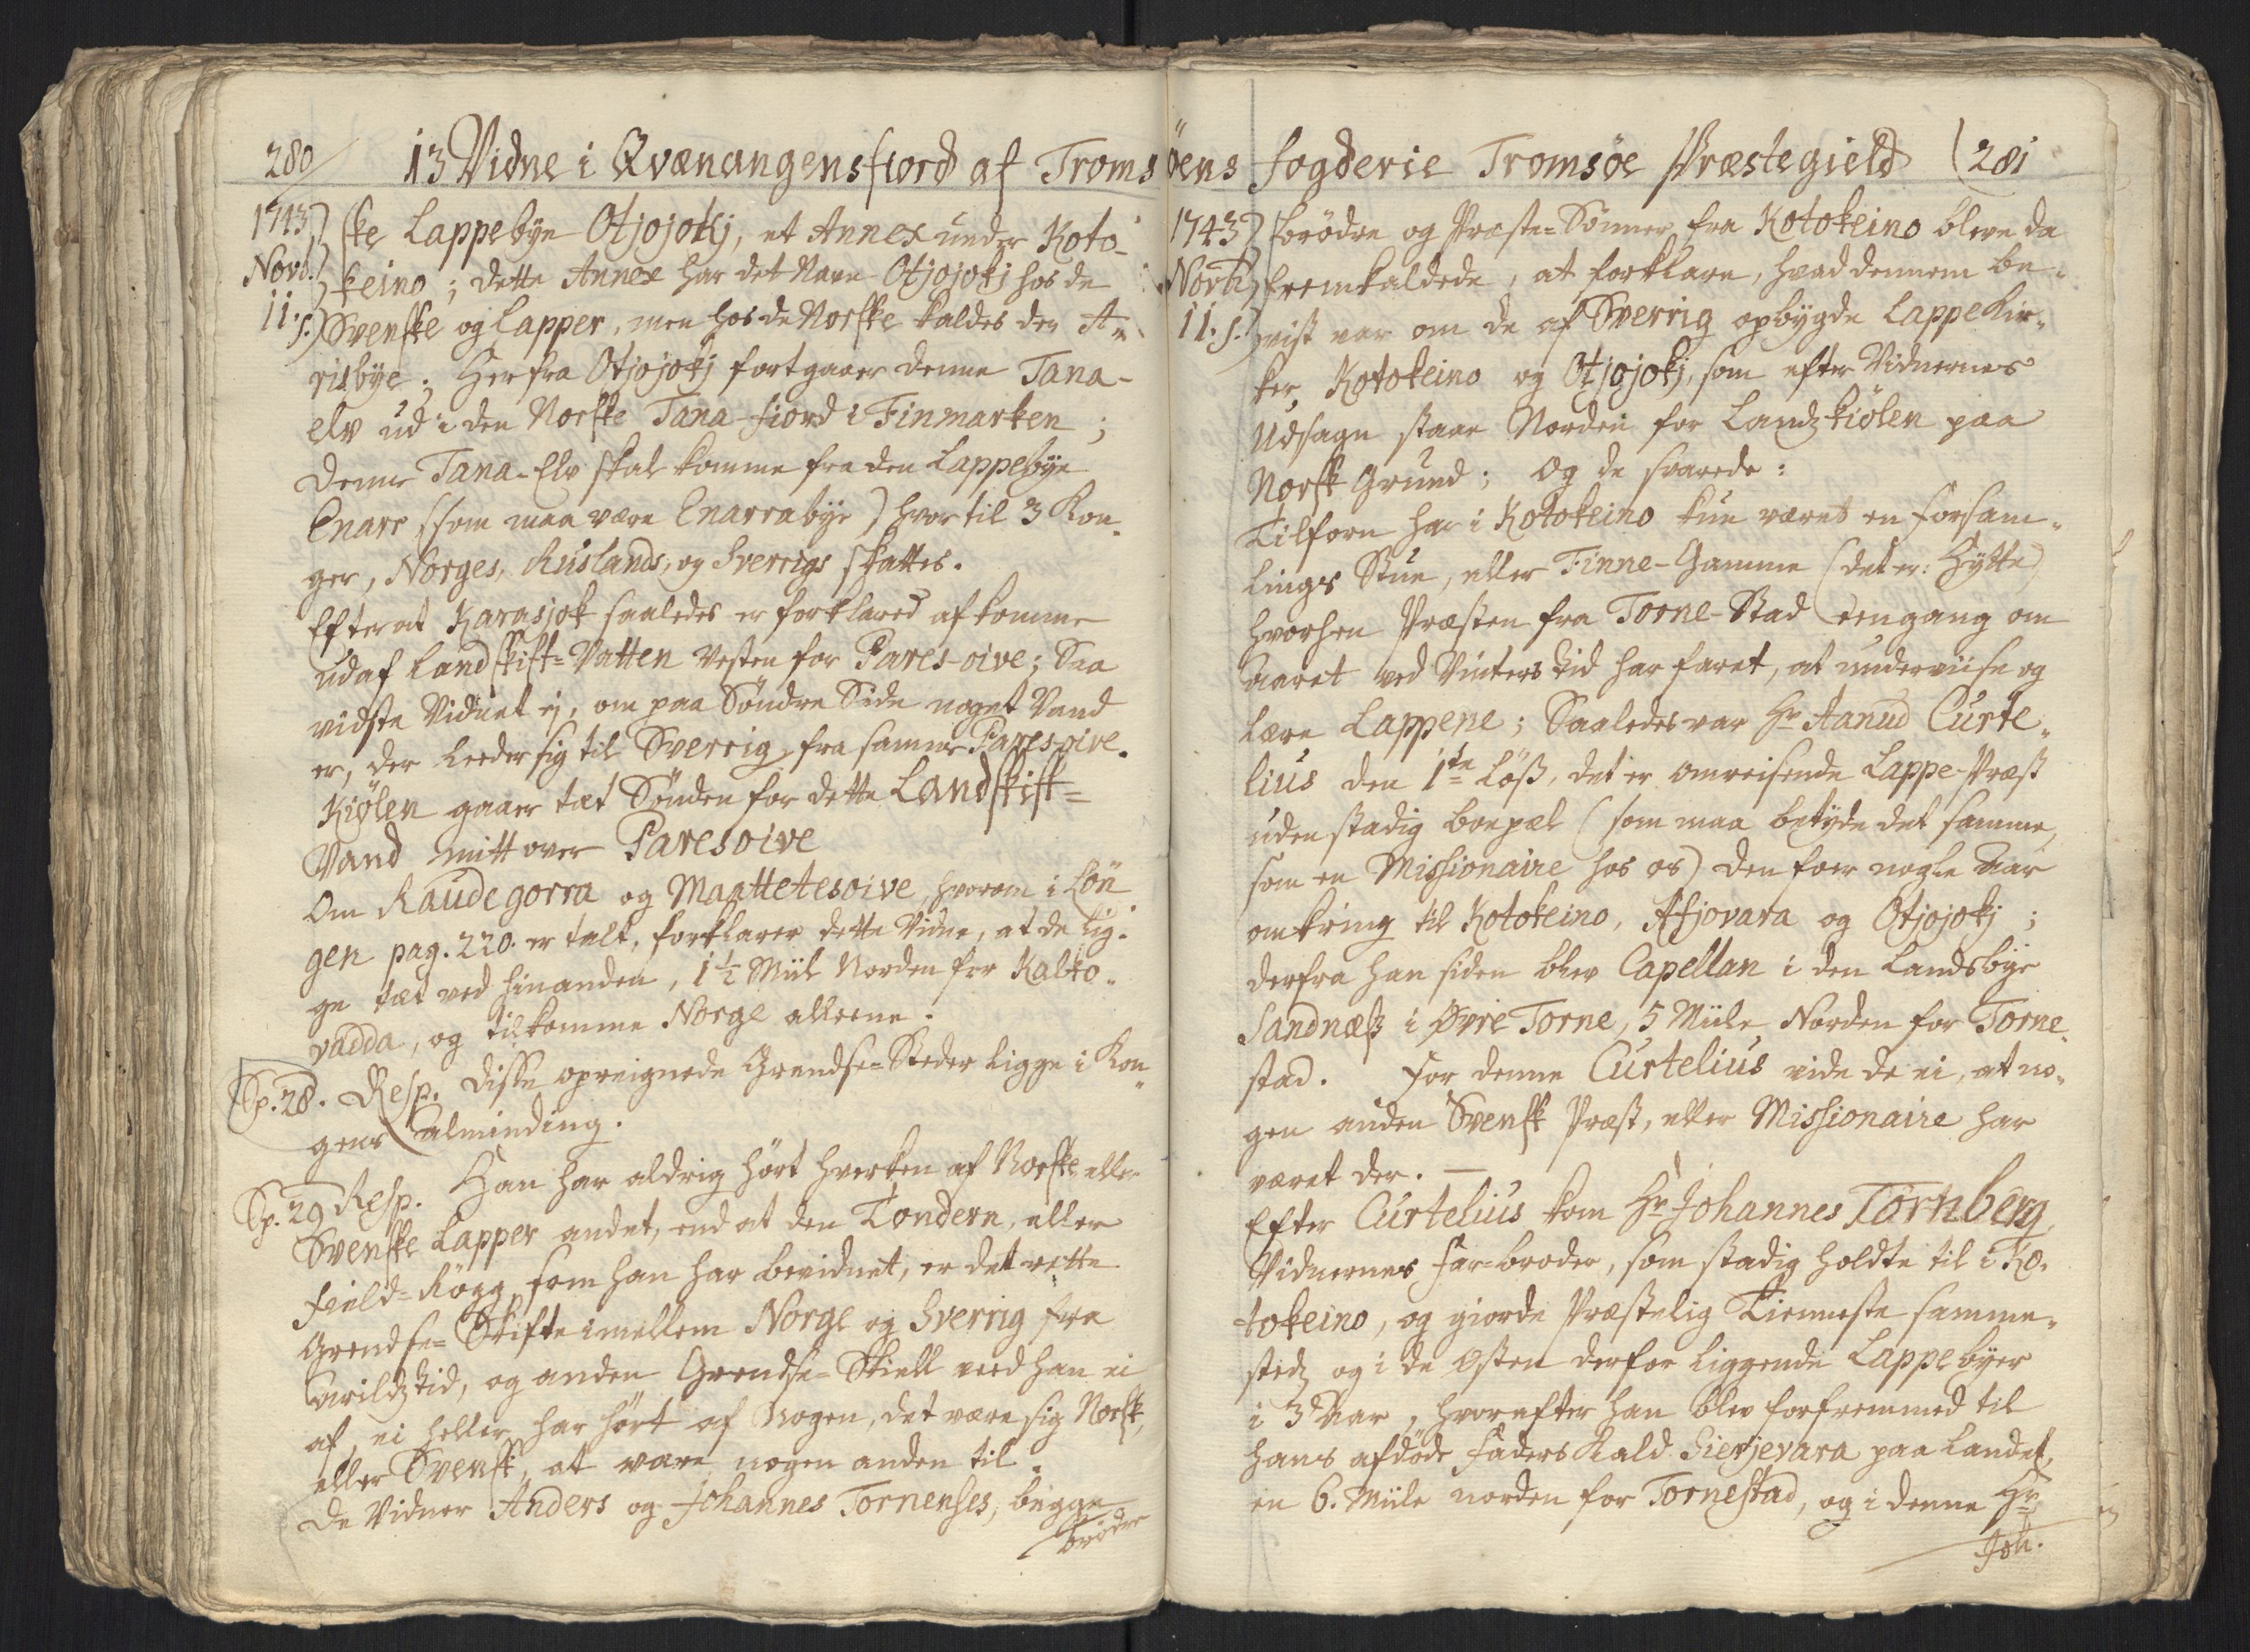 280
13 Vidne i Qvænangensfiord af Troms
1743
Novb.
11. s.
ske Lappebye Otjojokj, et Annex under Koto-
keino; dette Annex har det Navn Otjojokj hos de
Svenske og Lapper, men hos de Norske kaldes den A-
risbye. Herfra Otjojokj fortgaaer denne Tana-
elv ud i den Norske Tana-fiord i Finmarken;
Denne Tana-Elv skal komme fra den Lappebye
Enare (som maa være Enarrabye) hvortil 3 Kon-
ger, Norges, Ruslands, og Sverrigs skattes.
Efter at Karasjok saaledes er forklared at komme
ud af Landskift-Vatten Vesten for Pares-oive; Saa
vidste Vidnet ej, om paa Söndre Side noget Vand
er, der leeder sig til Sverrig fra samme Paresoive.
Kiölen gaaer tæt Sönden for dette Landskift-
Vand mitt over Paresoive
Om Raudegorra og Maattetesoive, hvorom i Lön-
gen pag. 220. er talt, forklarer dette Vidne, at de lig-
ge tæt ved hinanden, 1½ Miil Norden for Kalko-
vadda, og tilkomme Norge alleene.
Sp. 28. Resp. Disse opreignede Grendse-Steder ligge i Kon-
gens Alminding.
Sp. 29 Resp. Han har aldrig hört hverken af Norske eller
Svenske Lapper andet, end at den Tondern, eller
Field-Rögg, som han har bevidnet, er det rette
Grendse-Skifte imellem Norge og Sverrig fra
Arildztid, og anden Grendse-Skiell veed han ei
af, ei heller har hört af Nogen, det være sig Norsk,
eller Svensk, at være nogen anden til.
De Vidner Anders og Johannes Tornenses, begge
brödre
öens fogderie Tromsøe Præstegield
281
1743
Novb.
11. s.
brödre og Præste-Sönner fra Kotokeino bleve da
fremkaldede, at forklare, hvad dennem be-
vist var om de af Sverrig opbygde Lappe Kir-
ker, Kotokeino og Otjojokj, som efter Vidnernes
Udsagn staar Norden for Landzkiölen paa
Norsk Grund; Og de svarede:
Tilforn har i Kotokeino kun været en forsam-
lings Stue, eller Finne-Gamme (det er: Hytte)
hvorhen Præsten fra Torne-Stad eengang om
Aaret ved Vinters tid har faret, at underviise og
lære Lappene; Saaledes var Hr Aanud Curte-
lius den 1te Löß, det er omreisende Lappe-Præst
uden stadig boepæl (som maa betyde det samme,
som en Missionaire hos os) den foer nogle Aar
omkring til Kotokeino, Afjovara og Otjojokj;
derfra han siden blev Capellan i den Landsbye
Sandnæss i Øvre Torne, 5 Miile Norden for Torne-
stad. For denne Curtelius vide de ei, at no-
gen anden Svensk Præst, eller Missionaire har
været der. —
Efter Curtelius kom Hr Johannes Tornberg
Vidnernes Far-broder, som stadig holdte til i Ko-
tokeino, og giorde Præstelig Tienneste samme-
stedz og i de Østen derfor liggende Lappebyer
i 3 Aar, hvorefter han blev forfremmed til
hans afdöde Faders Kald Sierjevara paa Landet,
en 6. Miile norden for Tornestad, og i denne Hr
Joh.